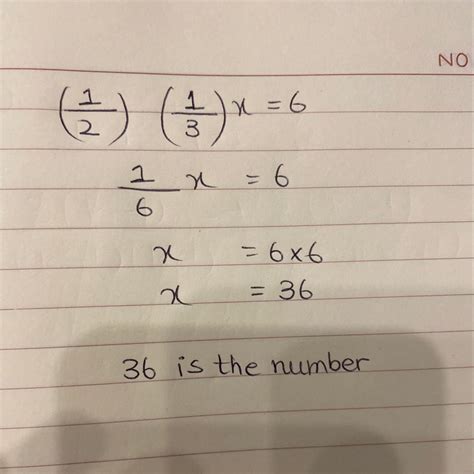 NO
(1/2) (1/3)x = 6
1/6 x = 6
x = 6x6
x = 36
36 is the number